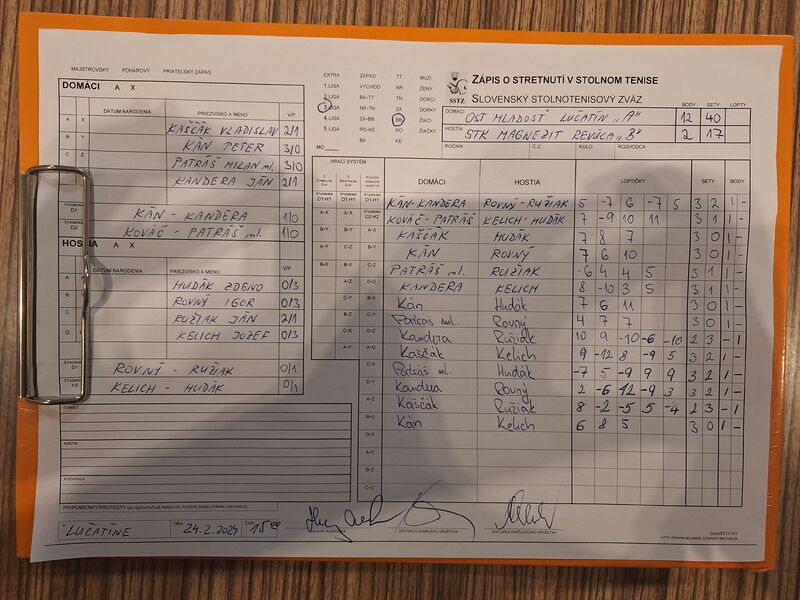 MAJSTROVSKÝ POHÁROVÝ PRIATEĽSKÝ ZÁPAS
DOMÁCI A X
DÁTUM NARODENIA PRIEZVISKO A MENO V/P
A Y KAŠČÁK VLADISLAV 2/1
B X KÁN PETER 3/0
C Z PATRÁŠ MILAN ml. 3/0
KANDERA JÁN 2/1
ŠTVORHRA D1 KÁN - KANDERA 1/0
ŠTVORHRA D2 KOVÁČ - PATRÁŠ ml. 1/0
HOSTIA A X
DÁTUM NARODENIA PRIEZVISKO A MENO V/P
A X HUDÁK ZDENO 0/3
B ROVNÝ IGOR 0/3
C RUŽIAK JÁN 2/1
D KELICH JOZEF 0/3
ŠTVORHRA D1 ROVNÝ - RUŽIAK 0/1
ŠTVORHRA H2 KELICH - HUDÁK 0/1
DOMÁCI
HOSTIA
ROZHODCA
PRIPOMIENKY/PROTESTY
V LUČATÍNE DŇA 24.2.2024 ČAS 15 00
EXTRA ZÁPAD TT MUŽI
1.LIGA VÝCHOD NR ŽENY
2.LIGA BA-TT TN DORCI
3.LIGA NR-TN ZA DORKY
4.LIGA ZA-BB BB ŽIACI
5.LIGA PO-KE PO ŽIAČKY
MO BA KE
SSTZ
ZÁPIS O STRETNUTÍ V STOLNOM TENISE
SLOVENSKÝ STOLNOTENISOVÝ ZVÄZ
BODY SETY LOPTY
DOMÁCI OST MLADOSŤ LUČATÍN „A" 12 40
HOSTIA STK MAGNEZIT REVÚCA „B" 2 17
ROČNÍK Č.Z. KOLO ROZHODCA
HRACÍ SYSTÉM
DOMÁCI HOSTIA LOPTIČKY SETY BODY
ŠTVORHRA D1-H1 ŠTVORHRA D1-H1 ŠTVORHRA D1-H1 KÁN-KANDERA ROVNÝ-RUŽIAK 5 -7 6 -7 5 3 2 1 -
A-X A-X ŠTVORHRA D2-H2 KOVÁČ-PATRÁŠ KELICH-HUDÁK 7 -9 10 11 3 1 1 -
B-Y B-Y A-X KAŠČÁK HUDÁK 7 8 7 3 0 1 -
A-Y C-Z B-Y KÁN ROVNÝ 7 6 10 3 0 1 -
B-X C-Z PATRÁŠ ml. RUŽIAK -6 4 4 5 3 1 1 -
A-Z D-U KANDERA KELICH 8 -10 3 5 3 1 1 -
C-Y B-X Kán Hudák 7 6 11 3 0 1 -
B-Z C-Y Patráš ml. Rovný 4 7 7 3 0 1 -
C-X D-Z Kandera Ružiak 10 9 -10 -6 -10 2 3 - 1
A-Y A-U Kaščák Kelich 9 -12 8 -9 5 3 2 1 -
C-X Patráš ml. Hudák -7 5 -9 9 9 3 2 1 -
D-Y Kandera Rovný 2 -6 12 -9 3 3 2 1 -
A-Z Kaščák Ružiak 8 -2 -5 5 -4 2 3 - 1
B-U Kán Kelich 6 8 5 3 0 1 -
D-X
A-Y
B-Z
C-U
HLAVNÝ ROZHODCA ZÁSTUPCA DOMÁCEHO DRUŽSTVA ZÁSTUPCA HOSŤUJÚCEHO DRUŽSTVA